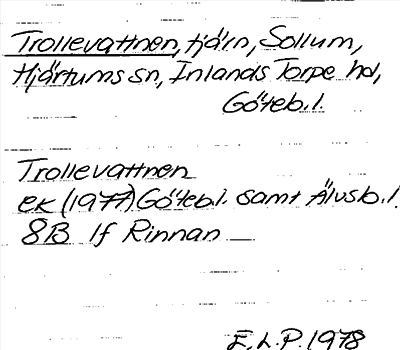 Trollevattnen, tjärn, Sollum,
Hjärtums sn, Inlands Torpe hd,
Göteb.l.
Trollevattnen
ek (1977) Göteb.l. samt Älvsb.l.
8B 1f Rinnan
E.L.P. 1978